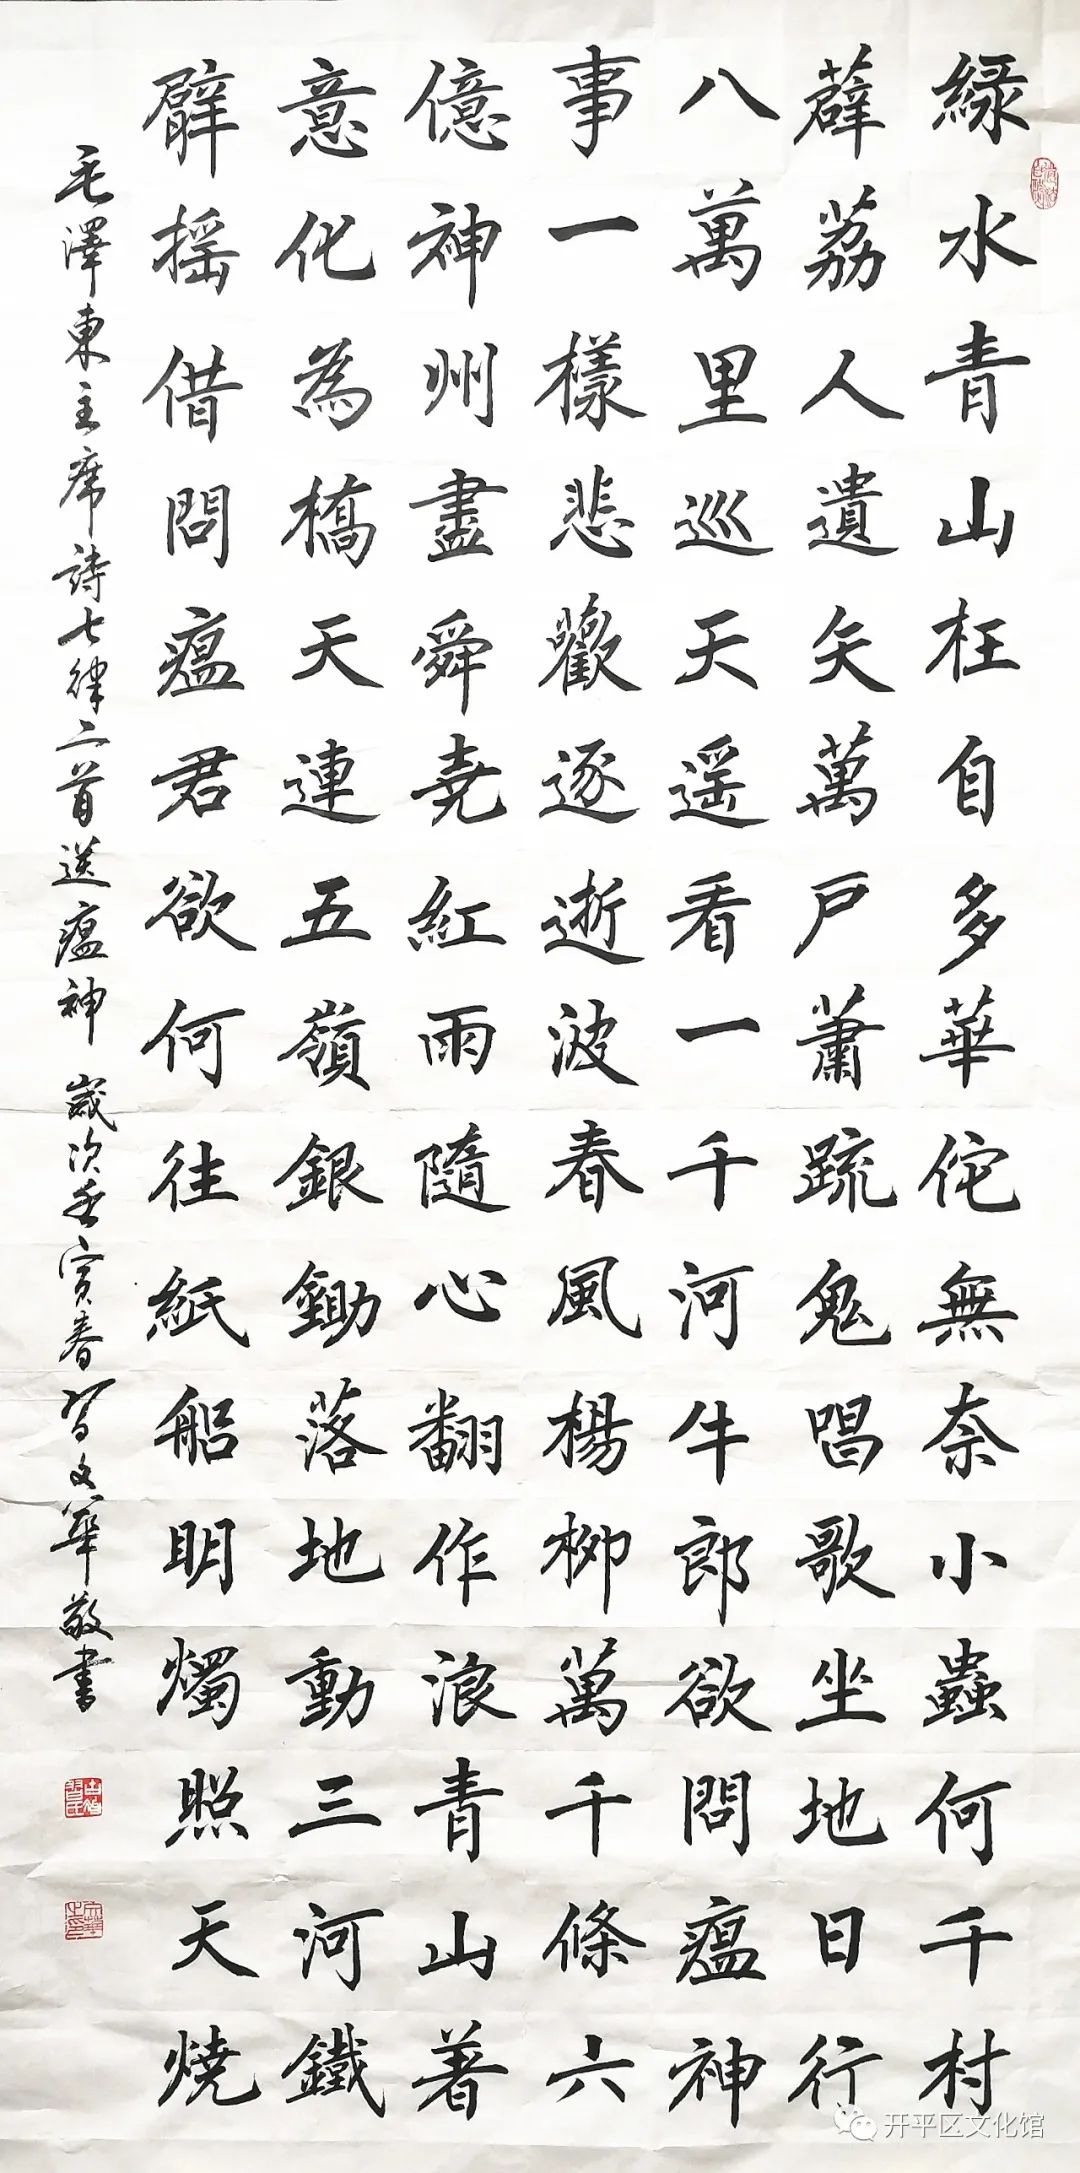 緑水青山枉自多華佗無奈小蟲何千村
薜荔人遺矢萬戶蕭疏鬼唱歌坐地日行
八萬里巡天遥看一千河牛郎欲問瘟神
事一樣悲歡逐逝波春風楊柳萬千條六
億神州盡舜堯紅雨隨心翻作浪青山着
意化為橋天連五嶺銀鋤落地動三河鐵
臂摇借問瘟君欲何往紙船明燭照天燒
毛澤東主席詩七律二首送瘟神 歲次壬寅春習文華敬書
开平区文化馆